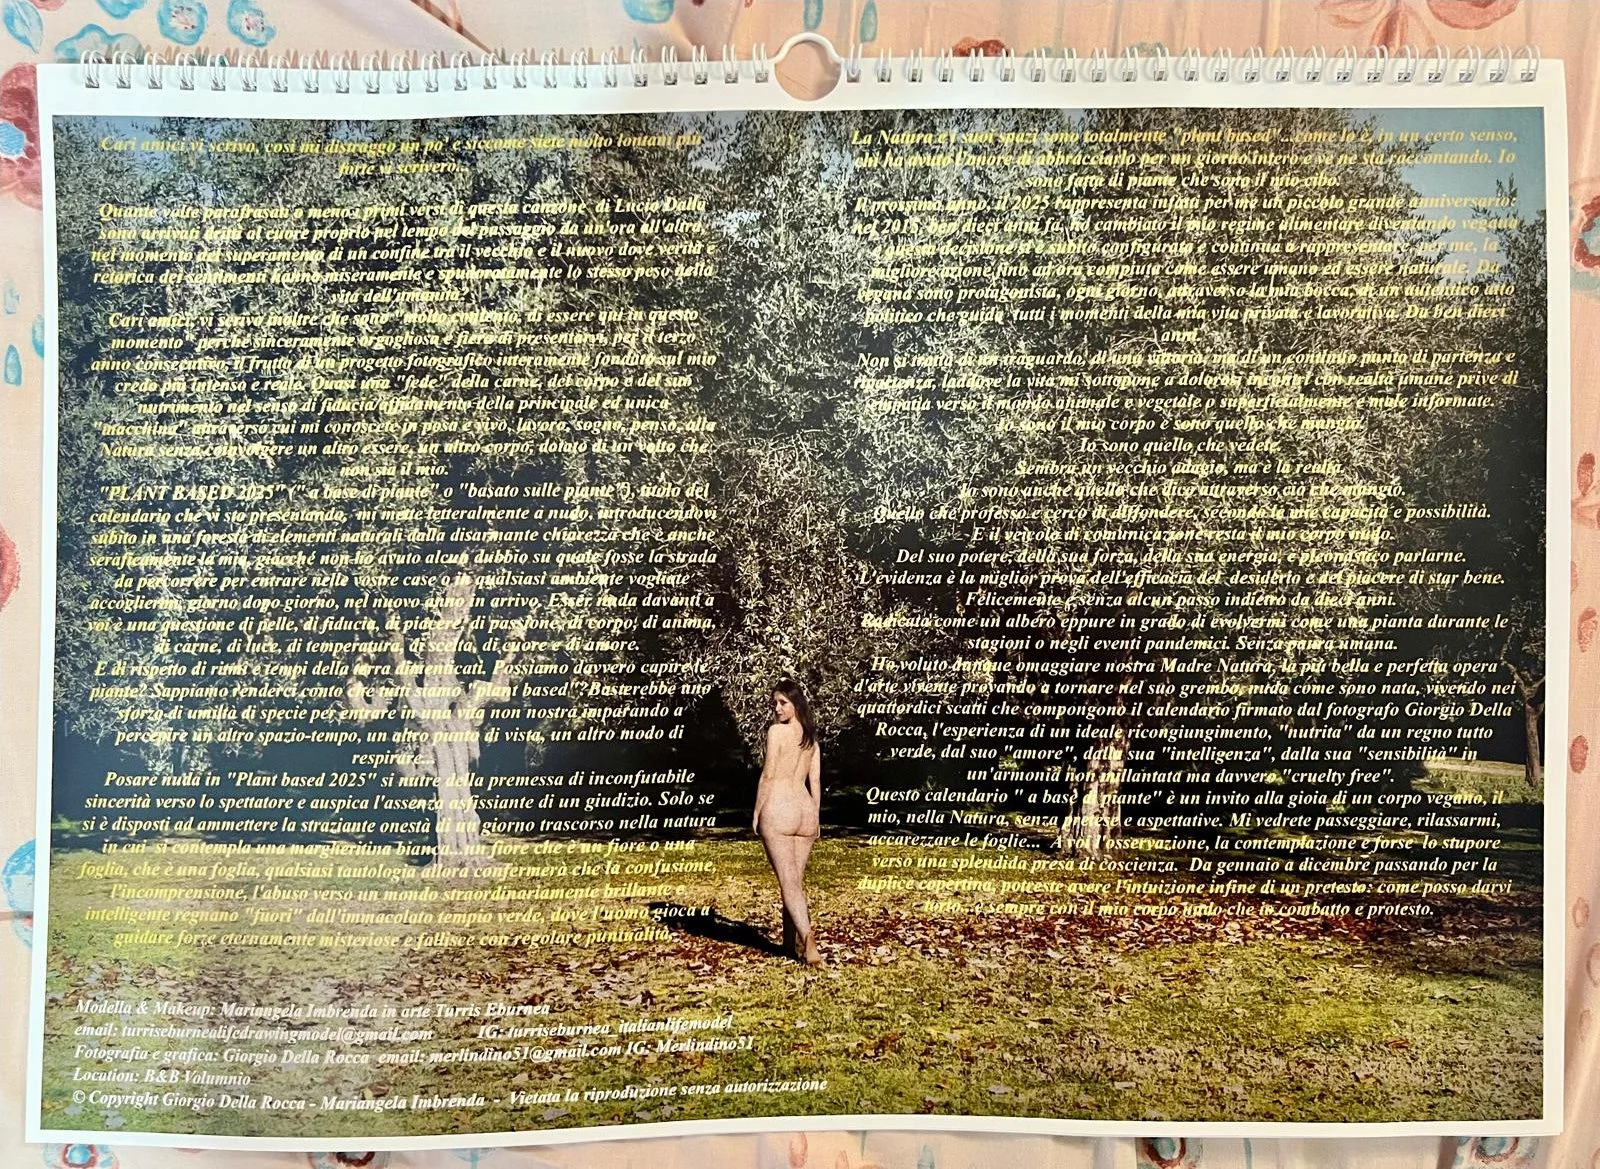 Cari amici vi scrivo, così mi distraggo un po' e siccome siete molto lontani più
forte vi scriverò...
Quante volte parafrasati o meno i primi versi di questa canzone di Lucio Dalla
sono arrivati dritti al cuore proprio nel tempo del passaggio da un'ora all'altra,
nel momento del superamento di un confine tra il vecchio e il nuovo dove verità e
retorica dei sentimenti hanno miseramente e spudoratamente lo stesso peso nella
vita dell'umanità?
Cari amici, vi scrivo inoltre che sono "molto contento, di essere qui in questo
momento" perché sinceramente orgogliosa e fiera di presentarvi, per il terzo
anno consecutivo, il frutto di un progetto fotografico interamente fondato sul mio
credo più intenso e reale. Quasi una "fede" della carne, del corpo e del suo
nutrimento nel senso di fiducia/affidamento della principale ed unica
"macchina" attraverso cui mi conoscete in posa e vivo, lavoro, sogno, penso, alla
Natura senza coinvolgere un altro essere, un altro corpo, dotato di un volto che
non sia il mio.
"PLANT BASED 2025" (" a base di piante" o "basato sulle piante"), titolo del
calendario che vi sto presentando, mi mette letteralmente a nudo, introducendovi
subito in una foresta di elementi naturali dalla disarmante chiarezza che è anche
seraficamente la mia, giacché non ho avuto alcun dubbio su quale fosse la strada
da percorrere per entrare nelle vostre case o in qualsiasi ambiente vogliate
accogliermi, giorno dopo giorno, nel nuovo anno in arrivo. Esser nuda davanti a
voi è una questione di pelle, di fiducia, di piacere, di passione, di corpo, di anima,
di carne, di luce, di temperatura, di scelta, di cuore e di amore.
E di rispetto di ritmi e tempi della terra dimenticati. Possiamo davvero capire le
piante? Sappiamo renderci conto che tutti siamo "plant based"?Basterebbe uno
sforzo di umiltà di specie per entrare in una vita non nostra imparando a
percepire un altro spazio-tempo, un altro punto di vista, un altro modo di
respirare...
Posare nuda in "Plant based 2025" si nutre della premessa di inconfutabile
sincerità verso lo spettatore e auspica l'assenza asfissiante di un giudizio. Solo se
si è disposti ad ammettere la straziante onestà di un giorno trascorso nella natura
in cui si contempla una margheritina bianca...un fiore che è un fiore o una
foglia, che è una foglia, qualsiasi tautologia allora confermerà che la confusione,
l'incomprensione, l'abuso verso un mondo straordinariamente brillante e
intelligente regnano "fuori" dall'immacolato tempio verde, dove l'uomo gioca a
guidare forze eternamente misteriose e fallisce con regolare puntualità.
La Natura e i suoi spazi sono totalmente "plant based"...come lo è, in un certo senso,
chi ha avuto l'onore di abbracciarlo per un giorno intero e ve ne sta raccontando. Io
sono fatta di piante che sono il mio cibo.
Il prossimo anno, il 2025 rappresenta infatti per me un piccolo grande anniversario:
nel 2015, ben dieci anni fa, ho cambiato il mio regime alimentare diventando vegana
e questa decisione si è subito configurata e continua a rappresentare, per me, la
migliore azione fino ad ora compiuta come essere umano ed essere naturale. Da
vegana sono protagonista, ogni giorno, attraverso la mia bocca, di un autentico atto
politico che guida tutti i momenti della mia vita privata e lavorativa. Da ben dieci
anni.
Non si tratta di un traguardo, di una vittoria, ma di un continuo punto di partenza e
ripartenza, laddove la vita mi sottopone a dolorosi incontri con realtà umane prive di
empatia verso il mondo animale e vegetale o superficialmente e male informate.
Io sono il mio corpo e sono quello che mangio.
Io sono quello che vedete.
Sembra un vecchio adagio, ma è la realtà.
Io sono anche quello che dico attraverso ciò che mangio.
Quello che professo e cerco di diffondere, secondo le mie capacità e possibilità.
E il veicolo di comunicazione resta il mio corpo nudo.
Del suo potere, della sua forza, della sua energia, è pleonastico parlarne.
L'evidenza è la miglior prova dell'efficacia del desiderio e del piacere di star bene.
Felicemente e senza alcun passo indietro da dieci anni.
Radicata come un albero eppure in grado di evolvermi come una pianta durante le
stagioni o negli eventi pandemici. Senza paura umana.
Ho voluto dunque omaggiare nostra Madre Natura, la più bella e perfetta opera
d'arte vivente provando a tornare nel suo grembo, nuda come sono nata, vivendo nei
quattordici scatti che compongono il calendario firmato dal fotografo Giorgio Della
Rocca, l'esperienza di un ideale ricongiungimento, "nutrita" da un regno tutto
verde, dal suo "amore", dalla sua "intelligenza", dalla sua "sensibilità" in
un'armonia non millantata ma davvero "cruelty free".
Questo calendario " a base di piante" è un invito alla gioia di un corpo vegano, il
mio, nella Natura, senza pretese e aspettative. Mi vedrete passeggiare, rilassarmi,
accarezzare le foglie... A voi l'osservazione, la contemplazione e forse lo stupore
verso una splendida presa di coscienza. Da gennaio a dicembre passando per la
duplice copertina, potreste avere l'intuizione infine di un pretesto: come posso darvi
torto...è sempre con il mio corpo nudo che io combatto e protesto.
Modella & Makeup: Mariangela Imbrenda in arte Turris Eburnea
email: turriseburnealifedrawingmodel@gmail.com IG: turriseburnea_italianlifemodel
Fotografia e grafica: Giorgio Della Rocca email: merlindino51@gmail.com IG: Merlindino51
Location: B&B Volumnio
© Copyright Giorgio Della Rocca - Mariangela Imbrenda - Vietata la riproduzione senza autorizzazione